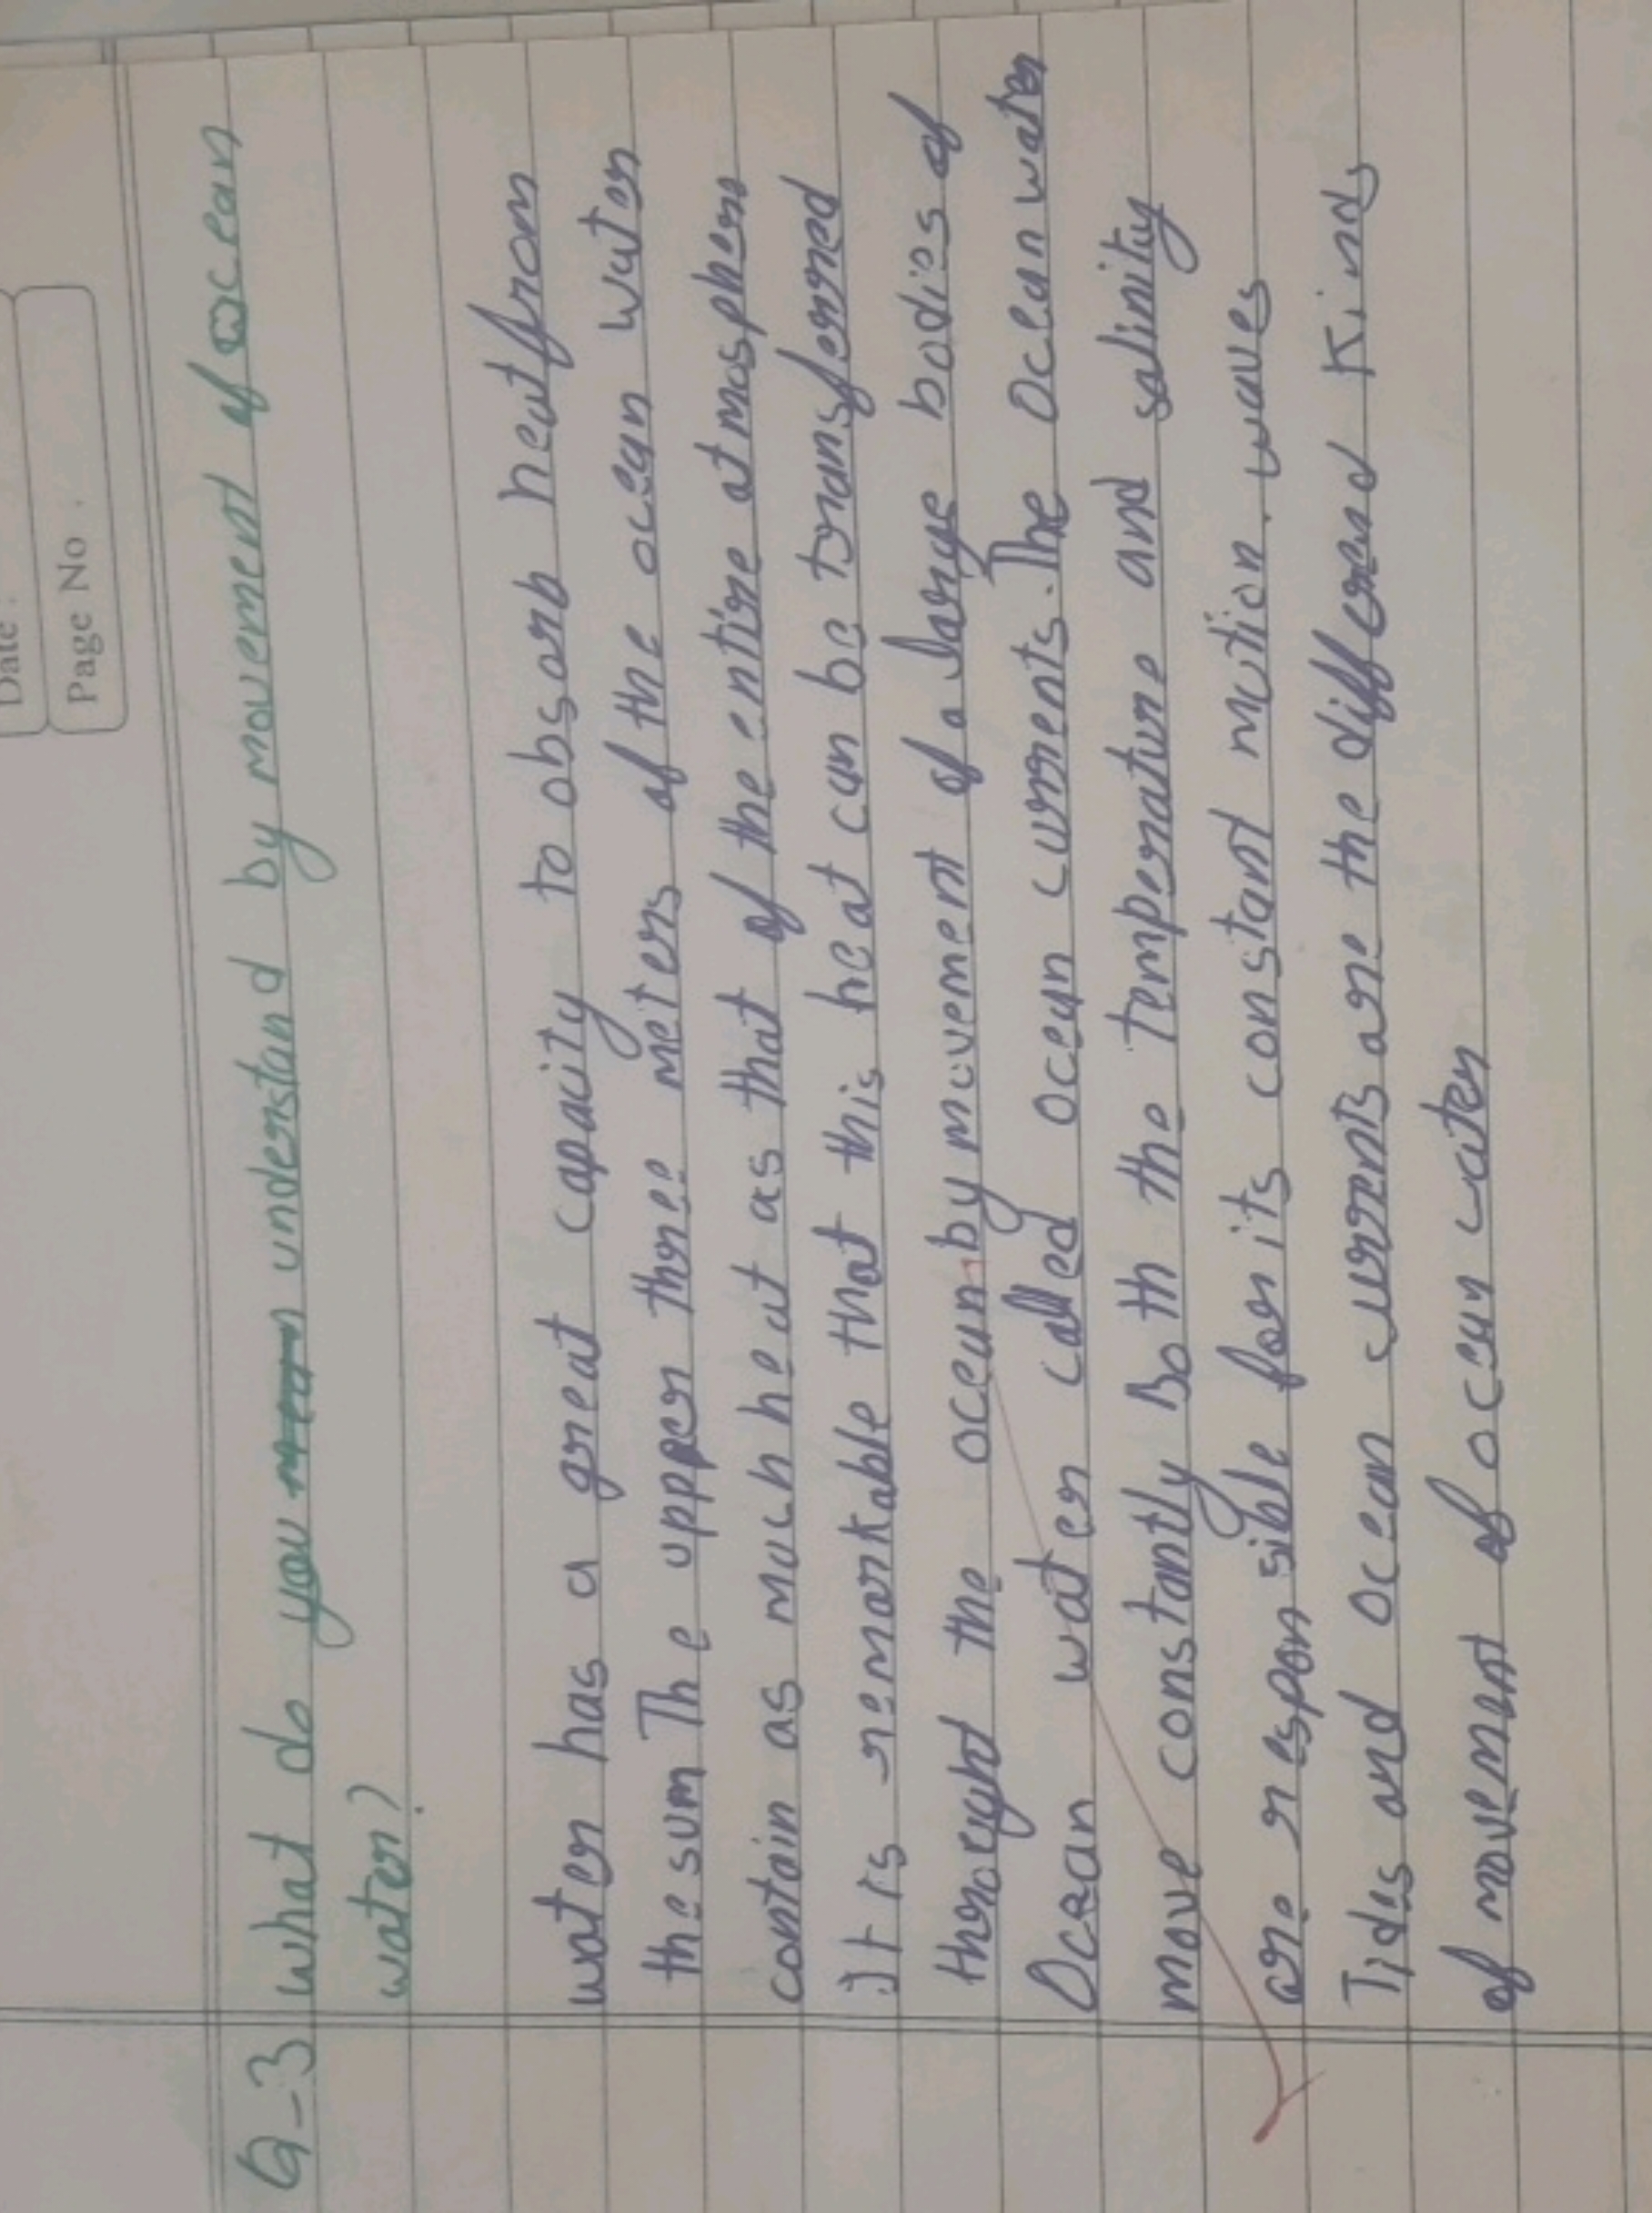 Date :
Page No .
Q-3 what do you understand by movement of ocean
water?
water has a great capacity to obsorb heat from
the sum The upper three meters of the ocean water
contain as much heat as that of the entire atmosphere
.It is remarkable that this heat can be transferred
throught the ocean by movement of a large bodies of
Ocean water called ocean currents. The Ocean water
move constantly Both the Temperature and salinity
are responsible for its constant motion. waves
Tides and ocean currents are the different kinds
of movement of ocean water